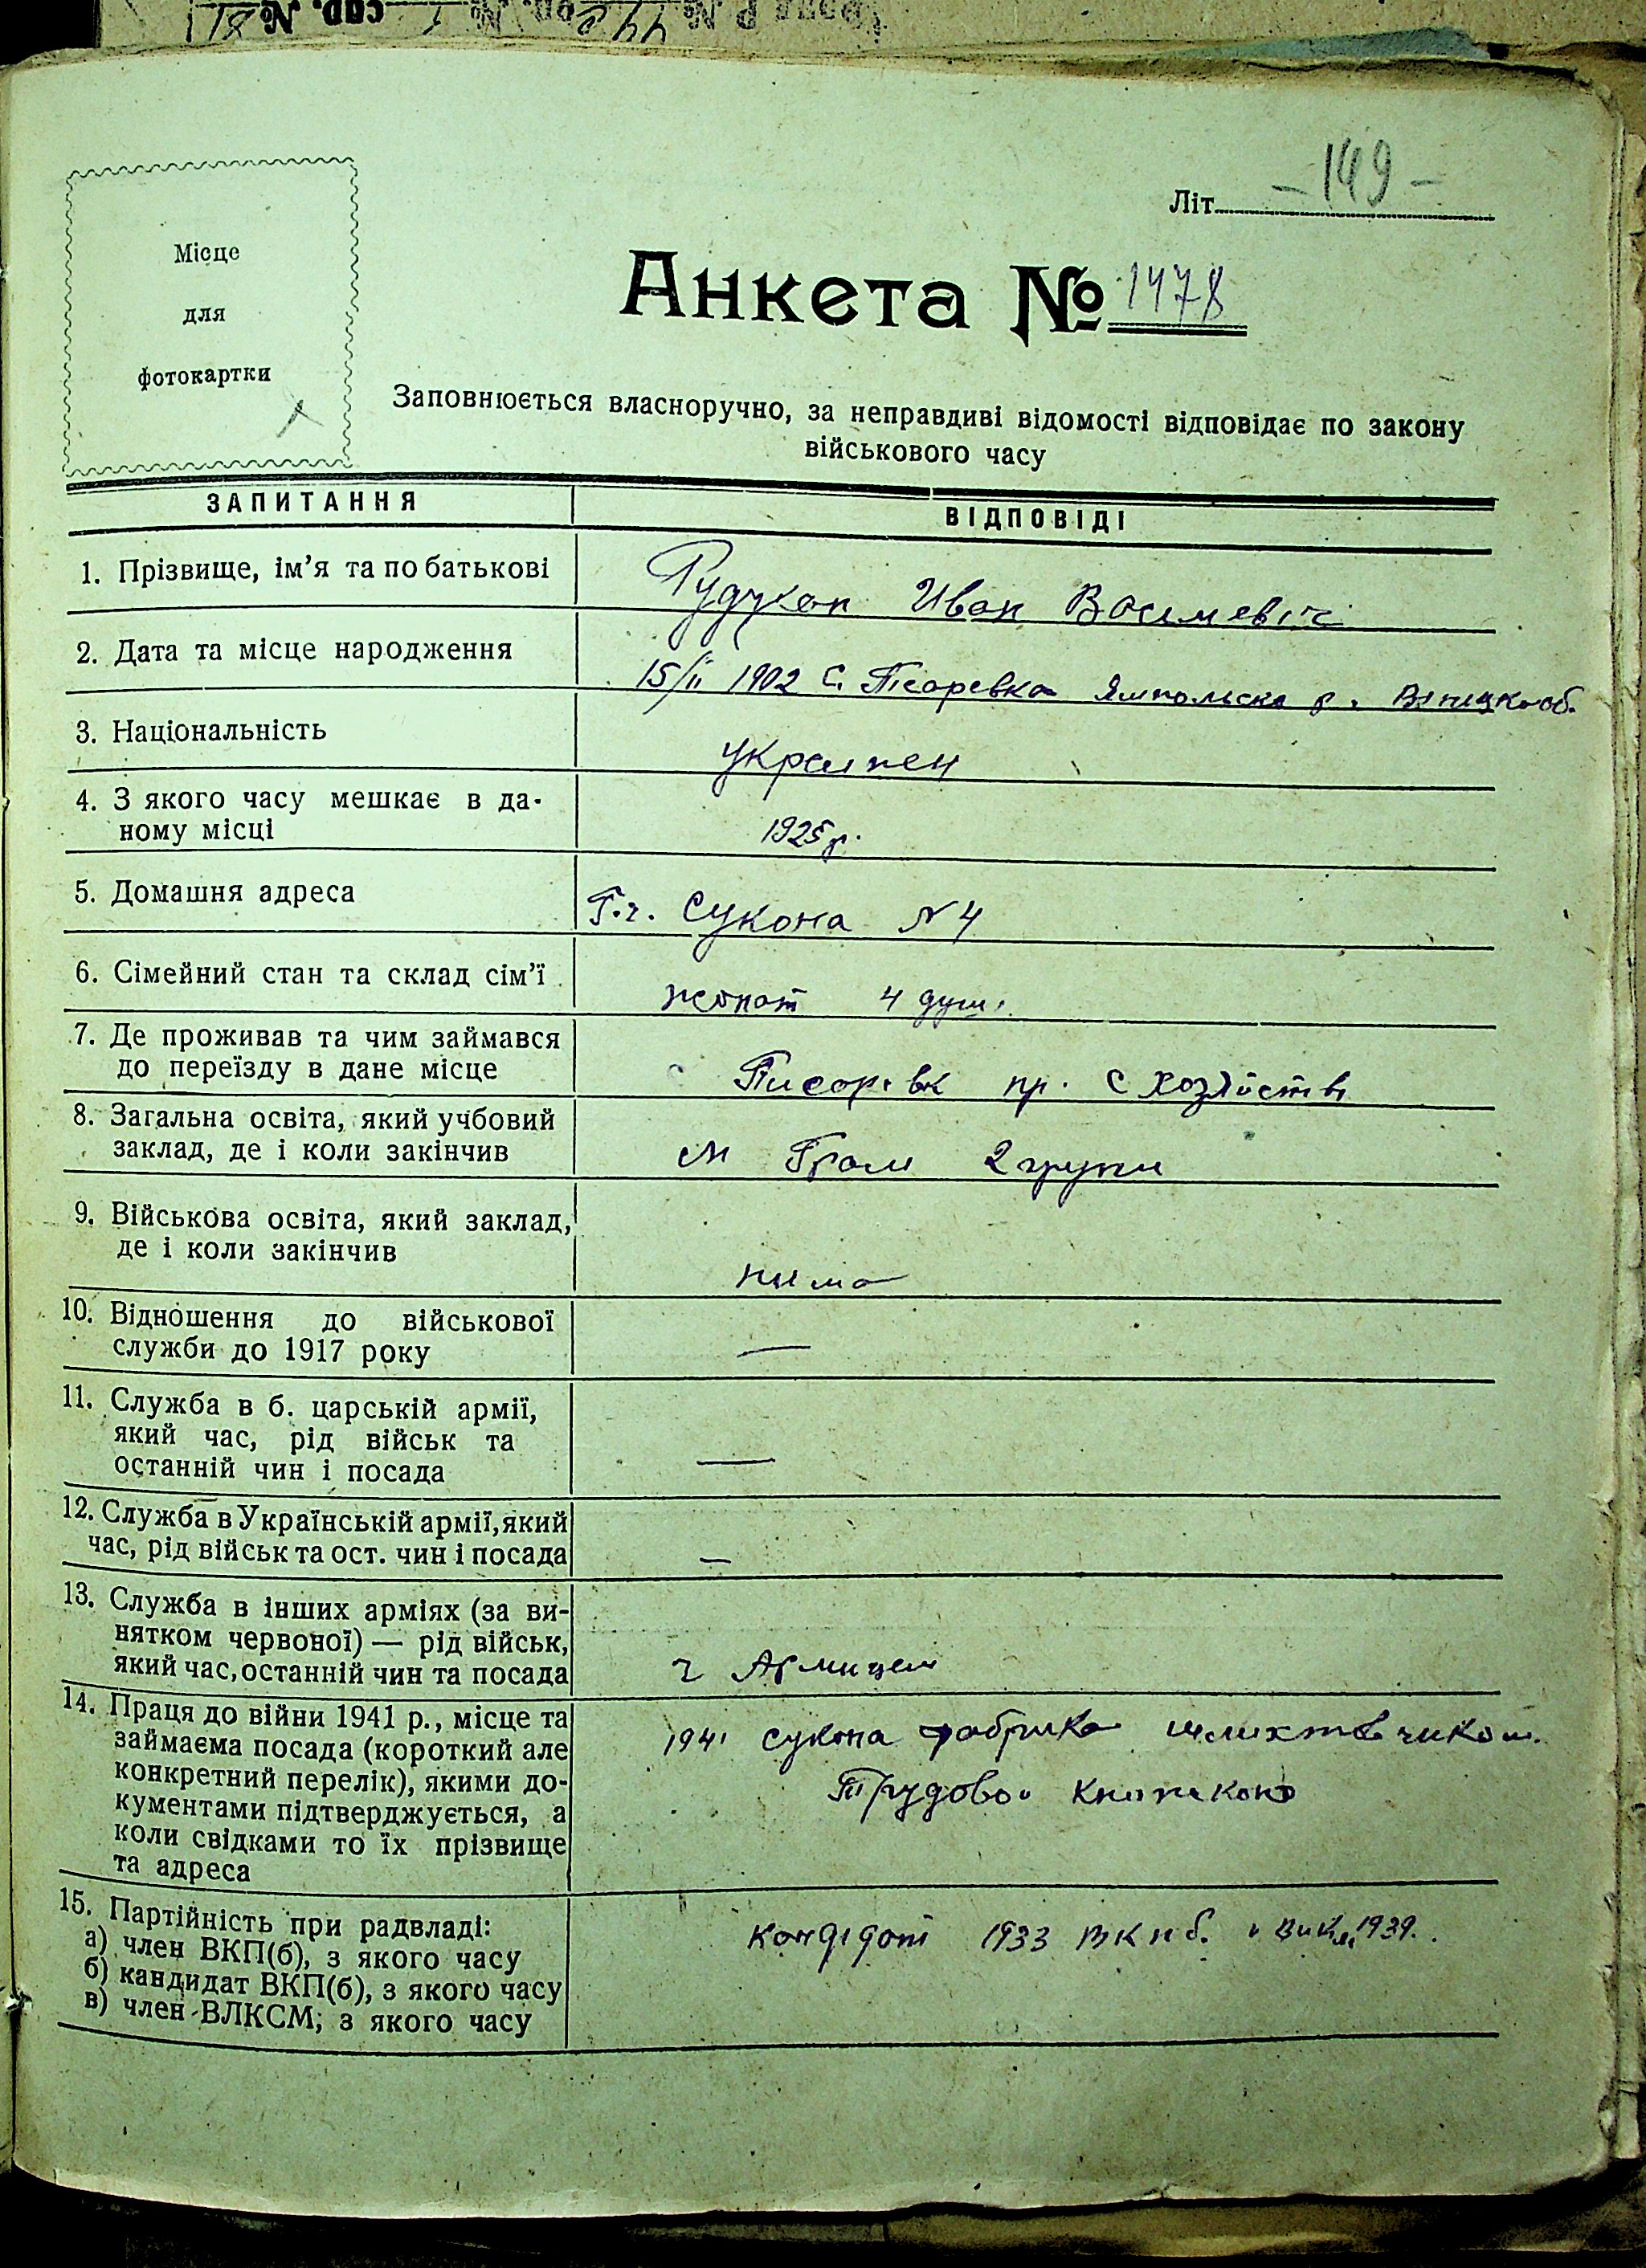 Фонд Р № 442 оп. № 1 спр. № 81
Літ. - 149 -
Місце
для
фотокартки
Анкета № 1478
Заповнюється власноручно, за неправдиві відомості відповідає по закону
військового часу
ЗАПИТАННЯ ВІДПОВІДІ
1. Прізвище, ім'я та по батькові
Иван
2. Дата та місце народження
15/ІІ 1902 С. Писаревка Ямпольска р.
3. Національність
украинец
4. З якого часу мешкає в да-
ному місці
1925 р.
5. Домашня адреса
Сукона N 4
6. Сімейний стан та склад сім'ї
жонат 4 душ.
7. Де проживав та чим займався
до переїзду в дане місце
пр. С
8. Загальна освіта, який учбовий
заклад, де і коли закінчив
м Грам 2 групи
9. Військова освіта, який заклад,
де і коли закінчив
нима
10. Відношення до військової
служби до 1917 року
—
11. Служба в б. царській армії,
який час, рід військ та
останній чин і посада
—
12. Служба в Українській армії, який
час, рід військ та ост. чин і посада
—
13. Служба в інших арміях (за ви-
нятком червоної) — рід військ,
який час, останній чин та посада
14. Праця до війни 1941 р., місце та
займаєма посада (короткий але
конкретний перелік), якими до-
кументами підтверджується, а
коли свідками то їх прізвище
та адреса
1941 сукона фабрика
Трудовои книжкою
15. Партійність при радвладі:
а) член ВКП(б), з якого часу
б) кандидат ВКП(б), з якого часу
в) член ВЛКСМ, з якого часу
кандідат 1933 1939.